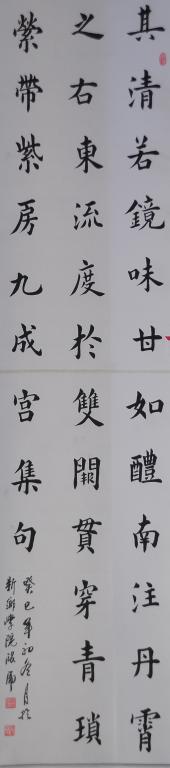 其清若鏡味甘如醴南注丹霄
之右東流度於雙闕貫穿青瑣
縈帶紫房九成宮集句
癸巳年初冬月於
新鄉學院